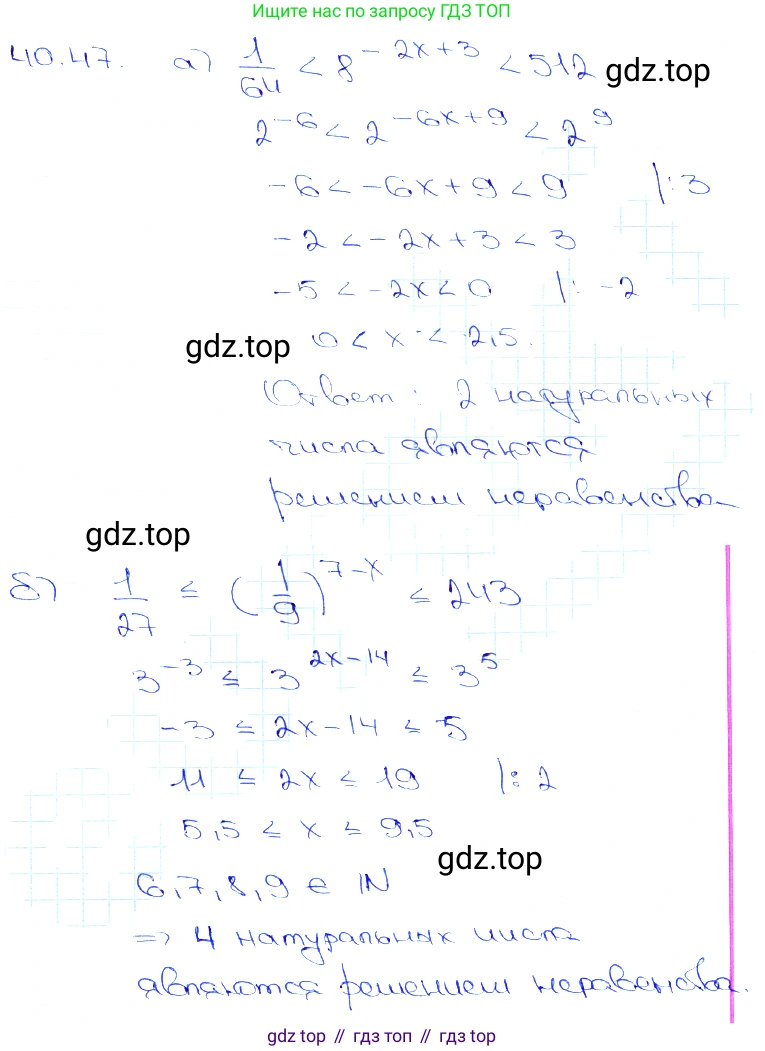 Ищите нас по запросу ГДЗ ТОП
40.47. а) 1/64 < 8^(-2x+3) < 512 gdz.top
2^(-6) < 2^(-6x+9) < 2^9
-6 < -6x+9 < 9 |:3
-2 < -2x+3 < 3
-5 < -2x < 0 |: -2
gdz.top 0 < x < 2,5.
Ответ: 2 натуральных
числа являются
решением неравенства
gdz.top
б) 1/27 ≤ (1/9)^(7-x) ≤ 243
3^(-3) ≤ 3^(2x-14) ≤ 3^5
-3 ≤ 2x-14 ≤ 5
11 ≤ 2x ≤ 19 |: 2
5,5 ≤ x ≤ 9,5
gdz.top
6,7,8,9 ∈ IN
=> 4 натуральных числа
являются решением неравенства.
gdz top // гдз топ // gdz top